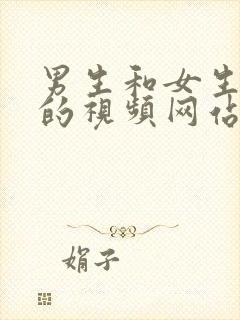 男生和女生
的視頻网站
娟子